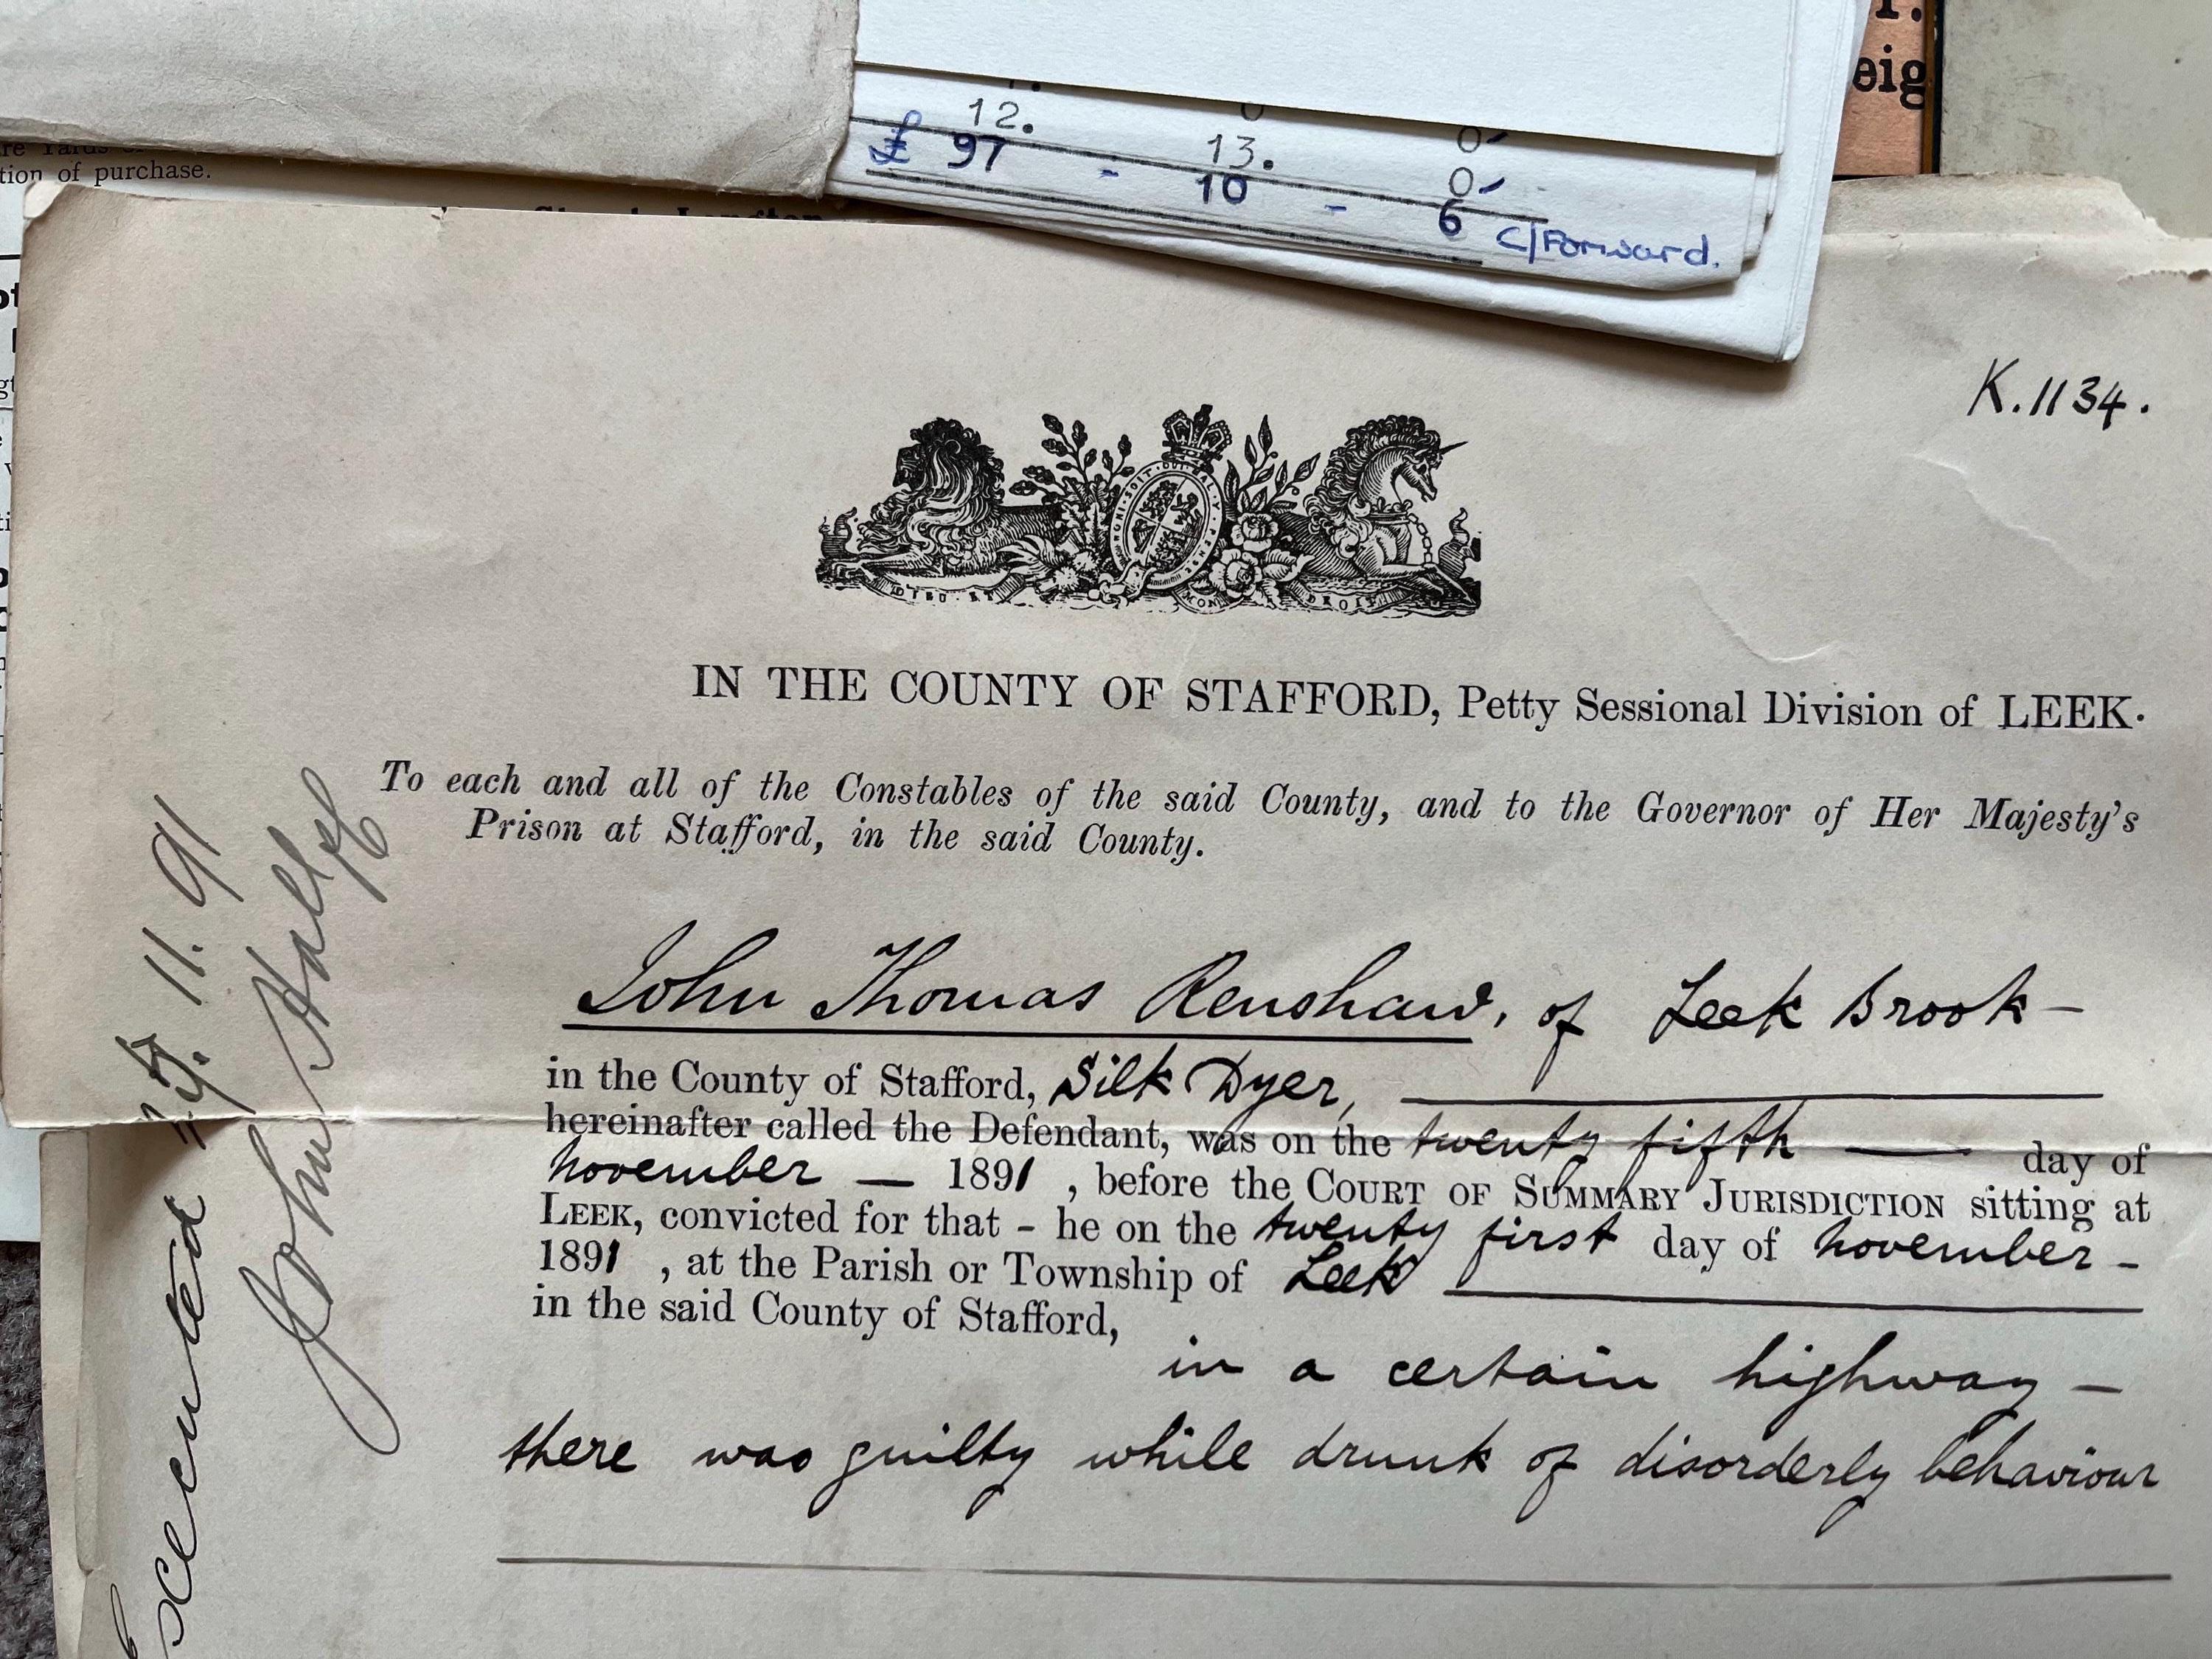 tion of purchase.
eig
12.
13. 0
£ 97 - 10 - 6 C/Forward.
K.1134.
HONI·SOIT·QUI·MAL·Y·PENSE
DIEU·ET MON DROIT
IN THE COUNTY OF STAFFORD, Petty Sessional Division of LEEK.
To each and all of the Constables of the said County, and to the Governor of Her Majesty's
Prison at Stafford, in the said County.
John Thomas Renshaw, of Leek Brook—
in the County of Stafford, Silk Dyer,
hereinafter called the Defendant, was on the twenty fifth — day of
November — 1891 , before the COURT OF SUMMARY JURISDICTION sitting at
LEEK, convicted for that - he on the twenty first day of November -
1891 , at the Parish or Township of Leek
in the said County of Stafford,
in a certain highway —
there was guilty while drunk of disorderly behaviour
Executed 11. 91
John Hall